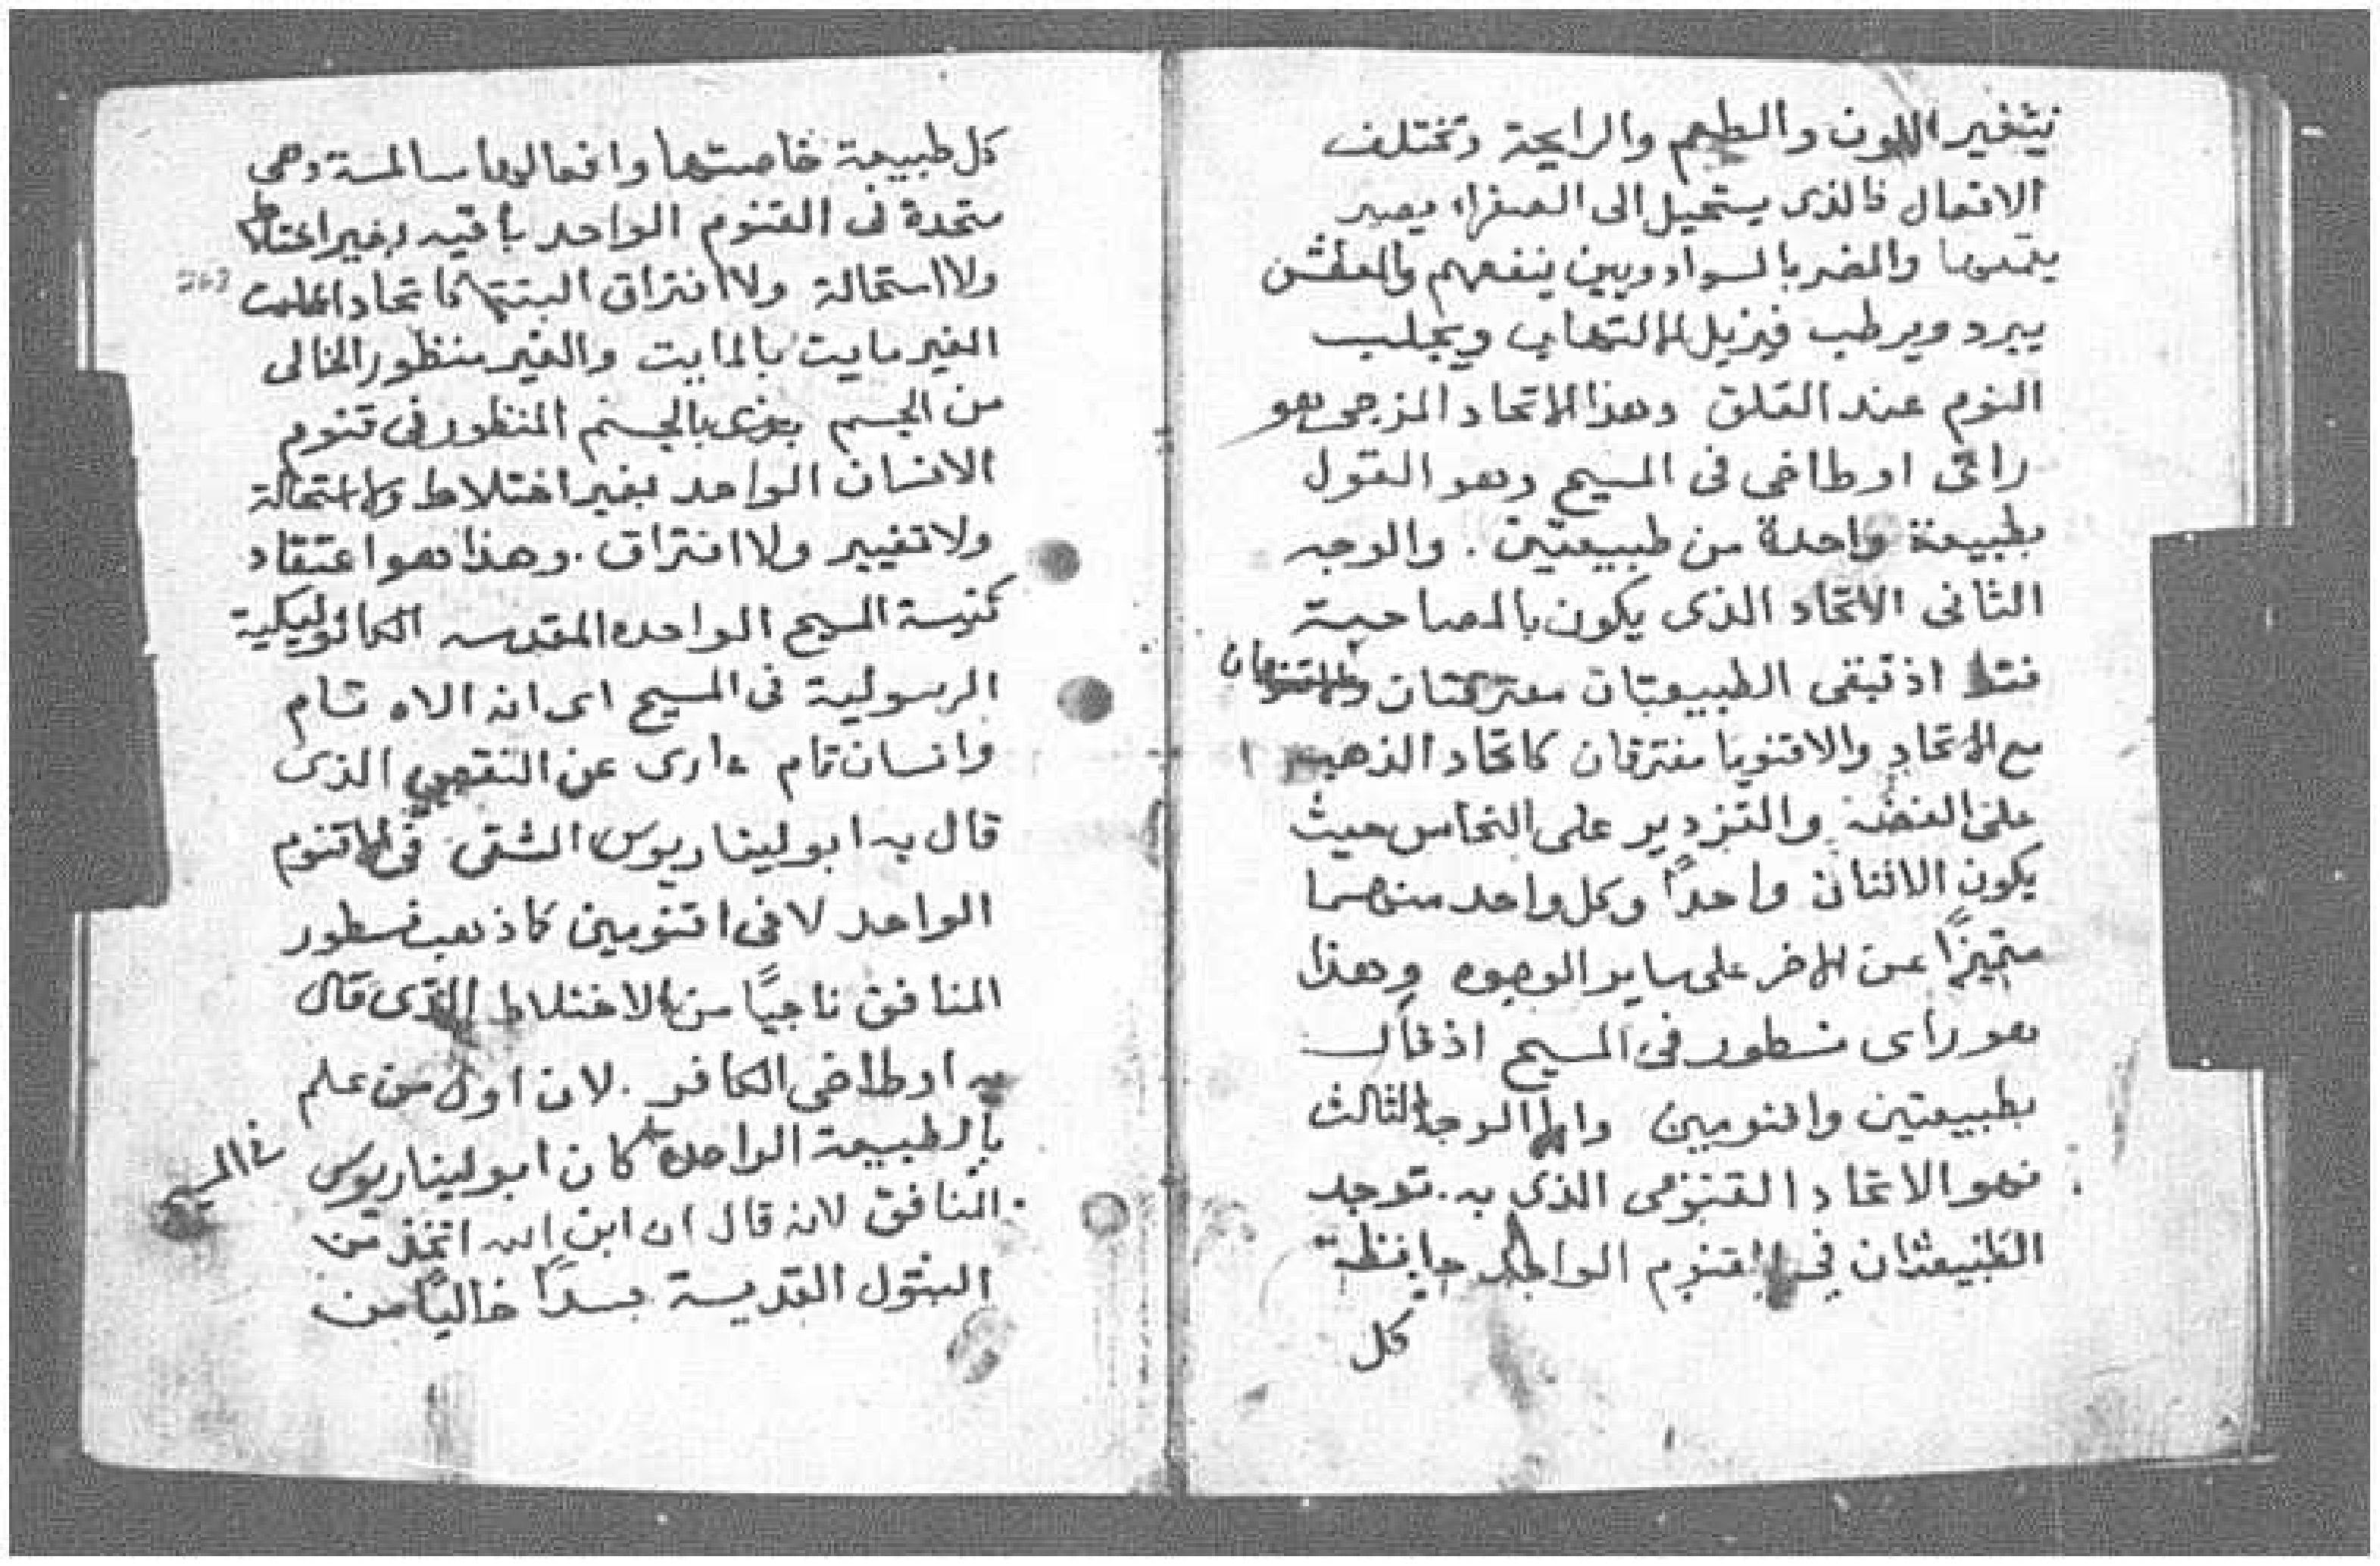 يتغير اللون والطعم والرايحة وتختلف
الافعال فالذى يستحيل الى الصفراء يصير
والمضر بالسوادويين ينفعهم والمعطش
يبرد ويرطب فيزيل الالتهاب ويجلب
النوم عند القلق وهذا الاتحاد المزجى هو
راى اوطاخى فى المسيح وهو القول
بطبيعة واحدة من طبيعتين . والوجه
الثانى الاتحاد الذى يكون بالمصاحبة
فقط اذ تبقى الطبيعتان مفترقتان
مع الاتحاد والاقنوما مفترقان كاتحاد الذهب
على الفضة والقزدير على النحاس حيث
يكون الاثنان واحدًا وكل واحد منهما
متميزًا عن الاخر على ساير الوجوه وهذا
هو راى نسطور فى المسيح اذ قال
بطبيعتين واقنومين واما الوجه الثالث
فهو الاتحاد القنومى الذى به توجد
الطبيعتان فى القنوم الواحد حافظة
كل
كل طبيعة خاصتها وافعالها سالمة وهى
متحدة فى القنوم الواحد باقيه بغير اختلاط
ولا استحالة ولا افتراق البتة كاتحاد
263
الغير مايت بالمايت والغير منظور الخالى
من الجسم بالجسم المنظور فى قنوم
الانسان الواحد بغير اختلاط ولا استحالة
ولا تغيير ولا افتراق . وهذا هو اعتقاد
كنيسة المسيح الواحده المقدسه الكاثوليكية
الرسولية فى المسيح اى انه الاه تام
وانسان تام عارى عن النقص الذى
قال به ابوليناريوس الشقى فى الاقنوم
الواحد لا فى اقنومين كما ذهب نسطور
المنافق ناجيًا من الاختلاط الذى قال
به اوطاخى الكافر . لان اول من علم
بالطبيعة الواحدة كان ابوليناريوس
فى المسيح
المنافق لانه قال ان ابن الله اتخذ من
البتول القديسة جسدًا خاليًا من